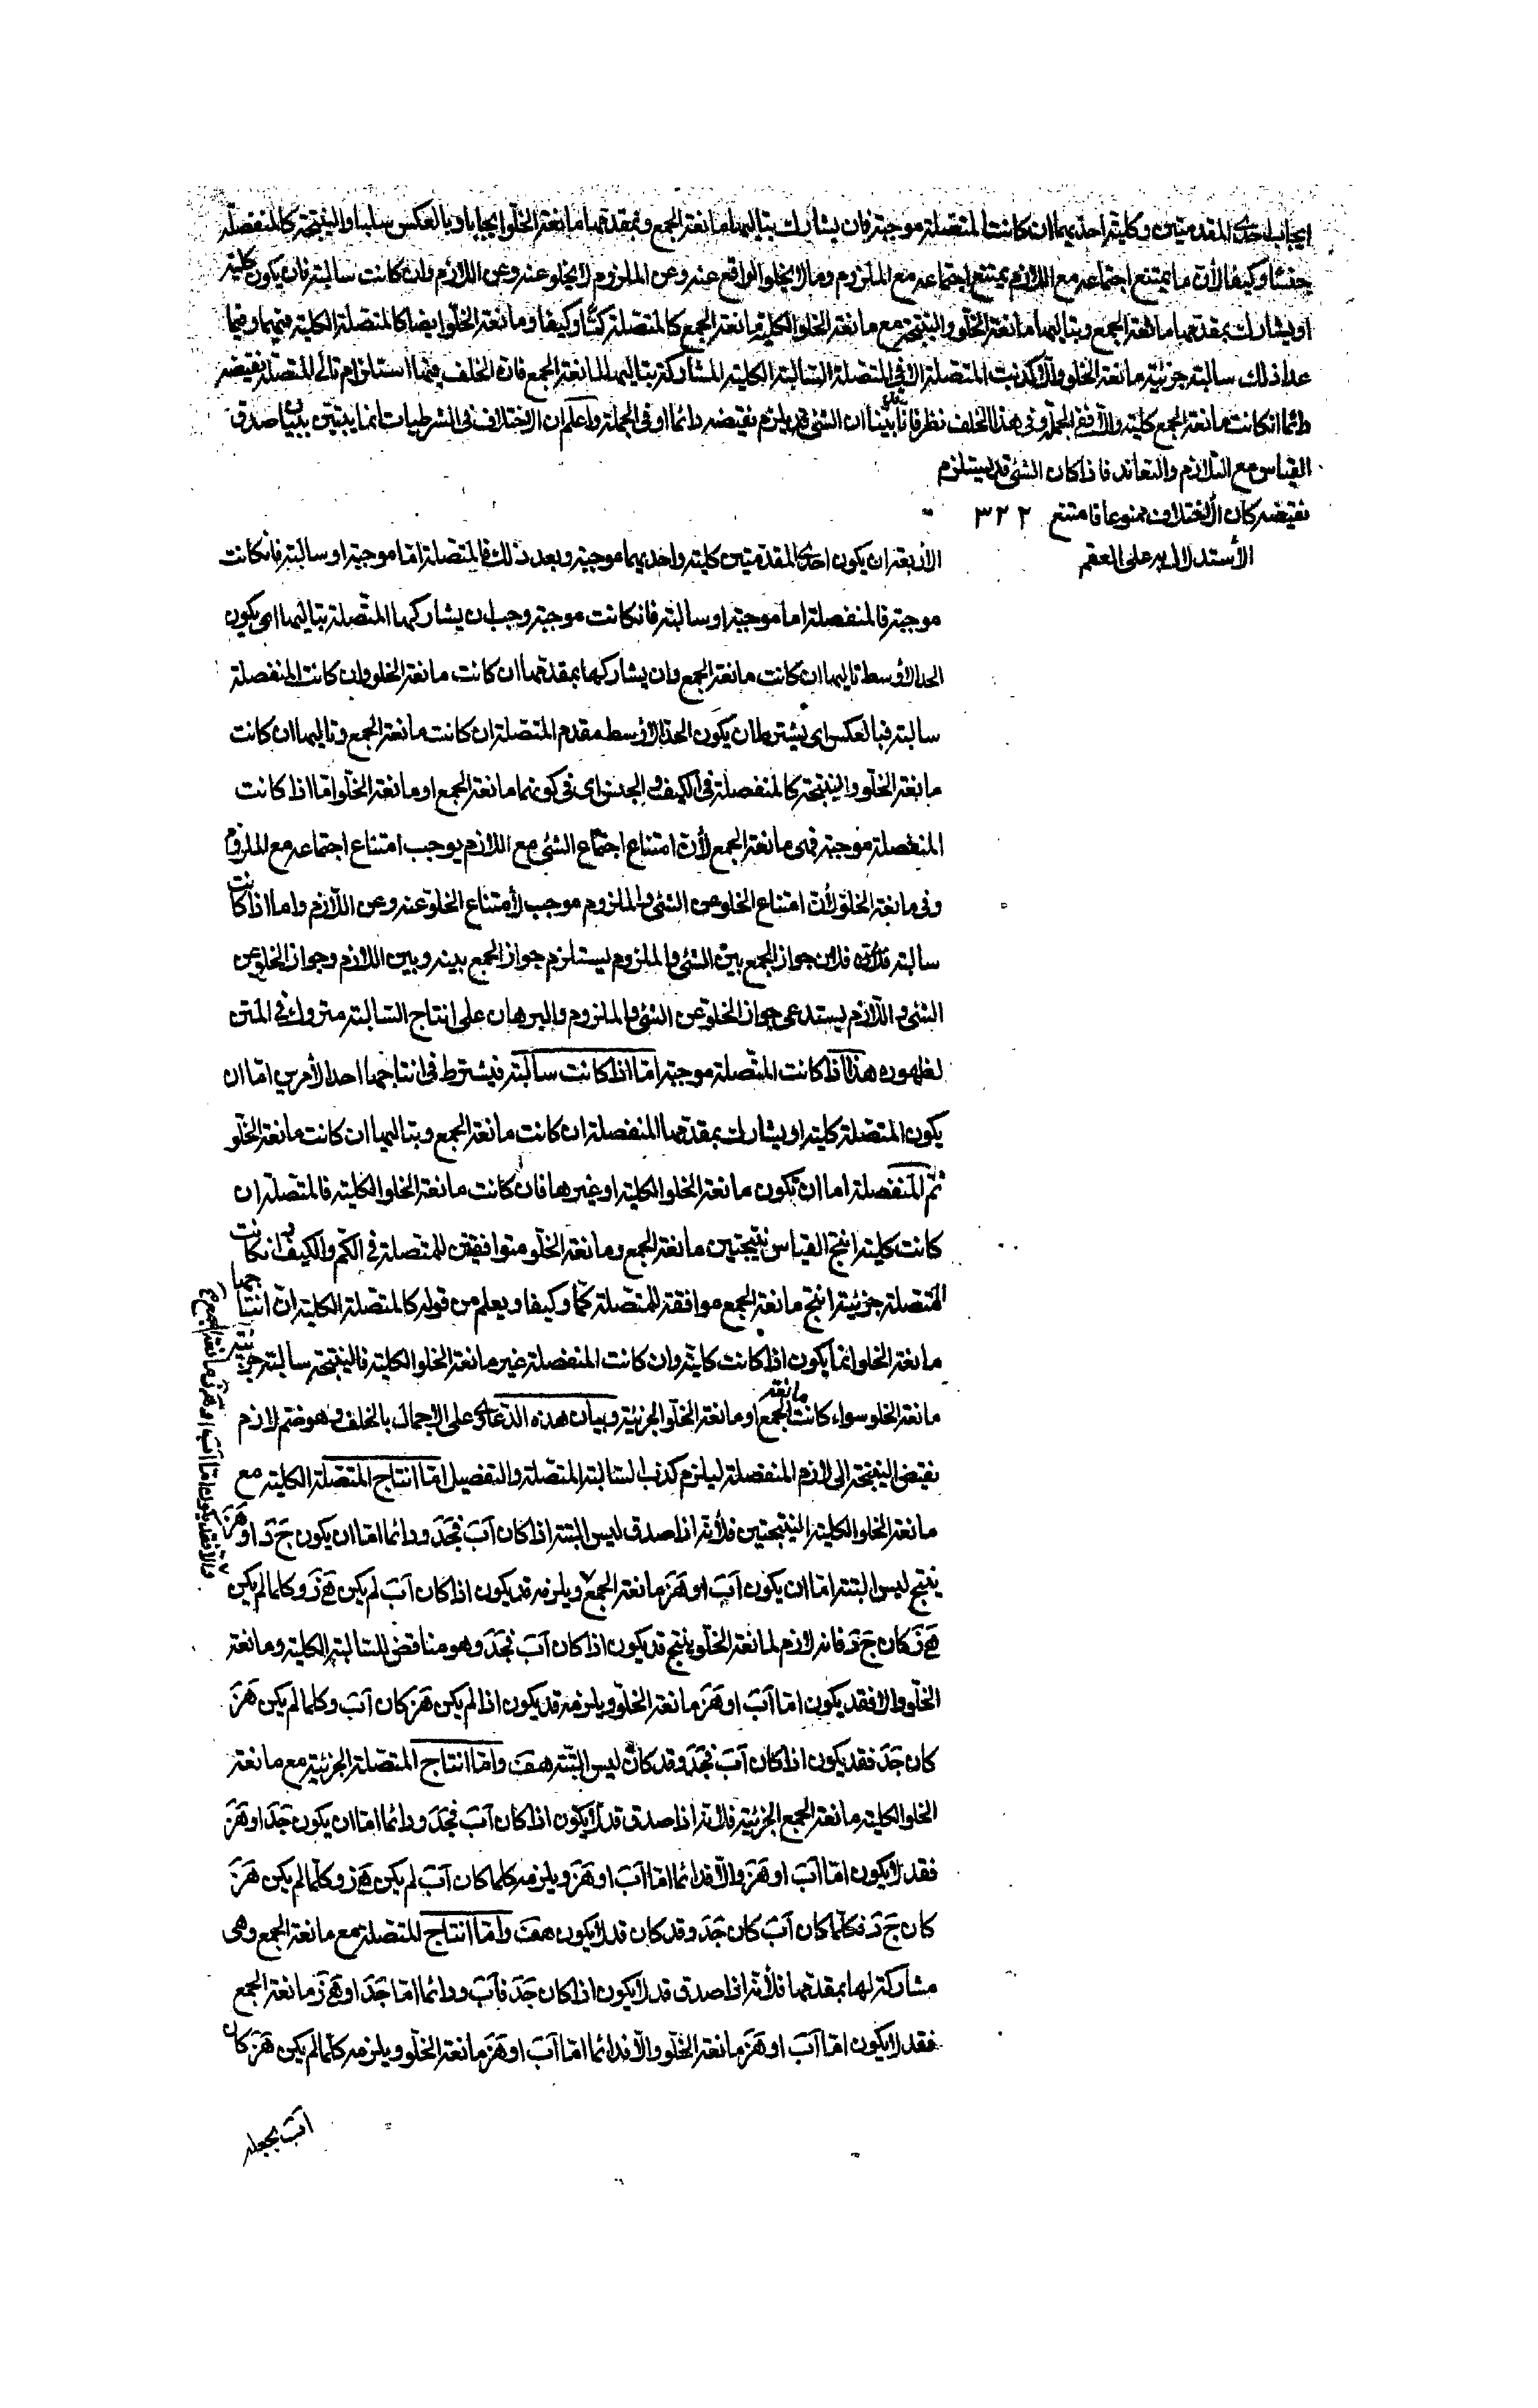 ايجاب احدى المقدمتين وكلية احديهما ان كانت المنفصلة موجبة فان يشارك بتاليهما مانعة الجمع وبمقدمهما مانعة الخلو ايجابا وبالعكس سلبا والنتيجة كالمنفصلة
جنسا وكيفا لأن ما يمتنع اجتماعه مع اللازم يمتنع اجتماعه مع الملزوم وما لا يخلو الواقع عنه وعن الملزوم لا يخلو عنه وعن اللازم وان كانت سالبة فان يكون كلية
او يشارك بمقدمها مانعة الجمع وبتاليها مانعة الخلو والنتيجة مع مانعة الخلو الكلية مانعة الجمع كالمتصلة كما وكيفا ومانعة الخلو ايضا كالمتصلة الكلية فيهما وفيما
عدا ذلك سالبة جزئية مانعة الخلو والا لكذبت المتصلة الا في المتصلة السالبة الكلية المشاركة بتاليها لمانعة الجمع فان الخلف فيها استلزام تالي المتصلة نقيضه
دائما ان كانت مانعة الجمع كلية والا ففي الجملة وفي هذا الخلف نظر فانا بينا ان الشئ قد يلزم نقيضه دائما او في الجملة واعلم ان الاختلاف في الشرطيات انما يتبين ببيان صدق
القياس مع التلازم والتعاند فاذا كان الشئ قد يستلزم
نقيضه كان الأختلاف ممنوعا فامتنع ٣٢٢
الأستدلال به على العقم
الأربعة ان يكون احدى المقدمتين كلية واحديهما موجبة وبعد ذلك فالمتصلة اما موجبة او سالبة فان كانت
موجبة فالمنفصلة اما موجبة او سالبة فان كانت موجبة وجب ان يشاركها المتصلة بتاليها اى يكون
الحد الأوسط تاليها ان كانت مانعة الجمع وان يشاركها بمقدمها ان كانت مانعة الخلو وان كانت المنفصلة
سالبة فبالعكس اى يشترط ان يكون الحد الأوسط مقدم المتصلة ان كانت مانعة الجمع وتاليها ان كانت
مانعة الخلو والنتيجة كالمنفصلة في الكيف والجنس اى في كونها مانعة الجمع او مانعة الخلو اما اذا كانت
المنفصلة موجبة ففى مانعة الجمع لأن امتناع اجتماع الشئ مع اللازم يوجب امتناع اجتماعه مع الملزوم
وفي مانعة الخلو لأن امتناع الخلو عن الشئ والملزوم موجب لأمتناع الخلو عنه وعن اللازم واما اذا كانت
سالبة فلأن جواز الجمع بين الشئ والملزوم يستلزم جواز الجمع بينه وبين اللازم وجواز الخلو عن
الشئ واللازم يستدعى جواز الخلو عن الشئ والملزوم والبرهان على انتاج السالبة متروك في المتن
لظهوره هذا اذا كانت المتصلة موجبة اما اذا كانت سالبة فيشترط في انتاجها احد الأمرين اما ان
يكون المتصلة كلية او يشارك بمقدمها المنفصلة ان كانت مانعة الجمع وبتاليها ان كانت مانعة الخلو
ثم المنفصلة اما ان تكون مانعة الخلو الكلية او غيرها فان كانت مانعة الخلو الكلية فالمتصلة ان
كانت كلية انتج القياس نتيجتين مانعة الجمع ومانعة الخلو متوافقتين للمتصلة في الكم والكيف وان كانت
المتصلة جزئية انتج مانعة الجمع موافقة للمتصلة كما وكيفا ويعلم من قوله كالمتصلة الكلية ان انتاجها
مانعة الخلو انما يكون اذا كانت كلية وان كانت المنفصلة غير مانعة الخلو الكلية فالنتيجة سالبة جزئية
مانعة الخلو سواء كانت مانعة الجمع او مانعة الخلو الجزئية وبيان هذه الدعاوى على الاجمال بالخلف وهو ضم لازم
نقيض النتيجة الى لازم المنفصلة ليلزم كذب السالبة المتصلة والتفصيل اما انتاج المتصلة الكلية مع
مانعة الخلو الكلية النتيجتين فلأنه اذا صدق ليس البتة اذا كان آب فجد ودائما اما ان يكون ج د او هز
ينتج ليس البتة اما ان يكون آب او هز مانعة الجمع ويلزمه قد يكون اذا كان آب لم يكن هز وكلما لم يكن
هز كان ج د فانه لازم لمانعة الخلو ينتج قد يكون اذا كان آب فجد وهو مناقض للسالبة الكلية ومانعة
الخلو والا فقد يكون اما آب او هز مانعة الخلو ويلزمه قد يكون اذا لم يكن هز كان آب وكلما لم يكن هز
كان جد فقد يكون اذا كان آب فجد وقد كان ليس البتة هف واما انتاج المتصلة الجزئية مع مانعة
الخلو الكلية مانعة الجمع الجزئية فلأنه اذا صدق قد لا يكون اذا كان آب فجد ودائما اما ان يكون جد او هز
فقد لا يكون اما آب او هز والا فدائما اما آب او هز ويلزمه كلما كان آب لم يكن هز وكلما لم يكن هز
كان ج د فكلما كان آب كان جد وقد كان قد لا يكون هف واما انتاج المتصلة مع مانعة الجمع وهى
مشاركة لها بمقدمها فلأنه اذا صدق قد لا يكون اذا كان جد فآب ودائما اما جد او هز مانعة الجمع
فقد لا يكون اما آب او هز مانعة الخلو والا فدائما اما آب او هز مانعة الخلو ويلزمه كلما لم يكن هز كان
والا فقد يكون اما آب او هز مانعة الجمع
آب بجعله